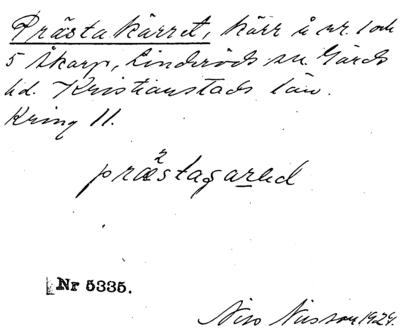 Prästakärret, kärr å nr. 1 och
5 Åkarp, Linderöds sn. Gärds
hd. Kristianstads län.
Kring 11.
præstagared
Nr 5335.
Nils Nilsson 1929.